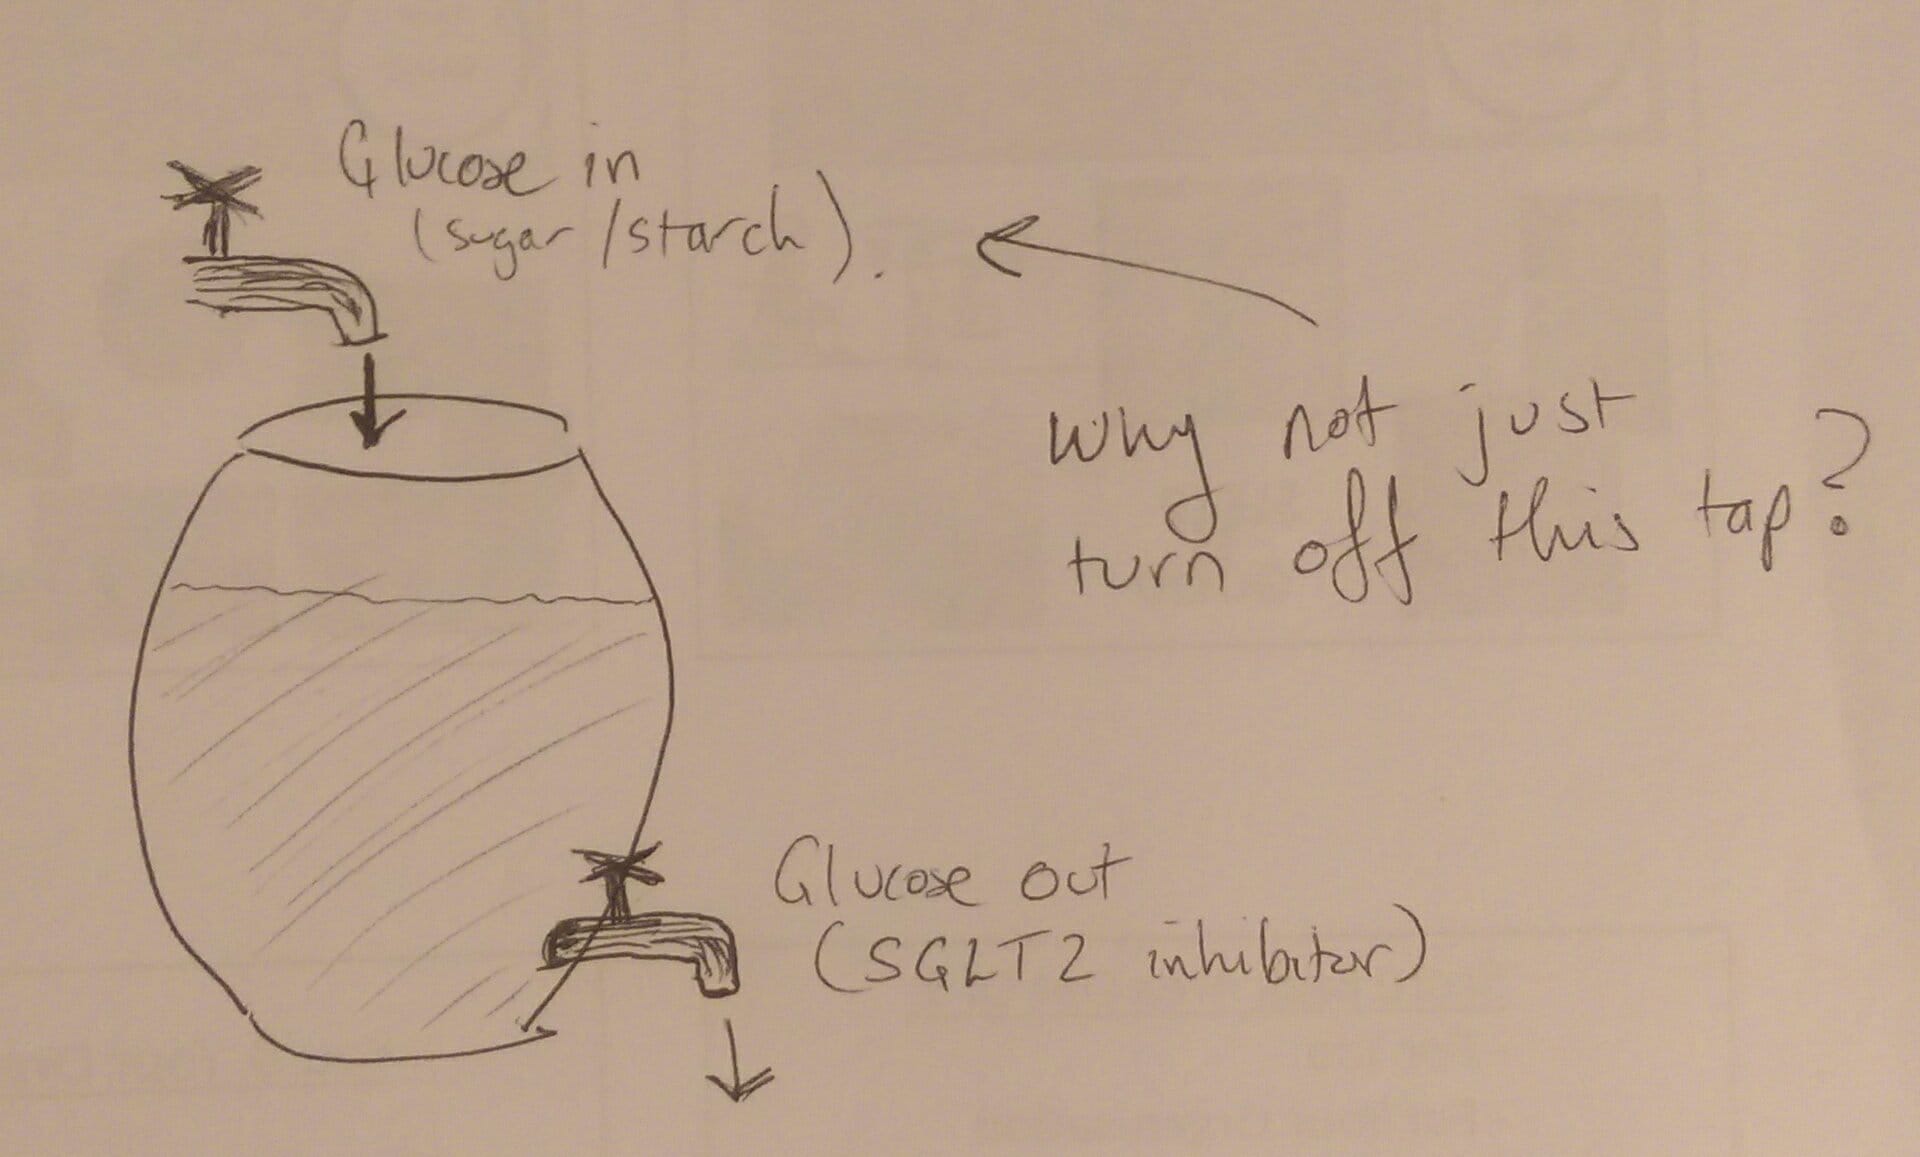 Glucose in
(sugar/starch).
Why not just
turn off this tap?
Glucose out
(SGLT2 inhibitor)